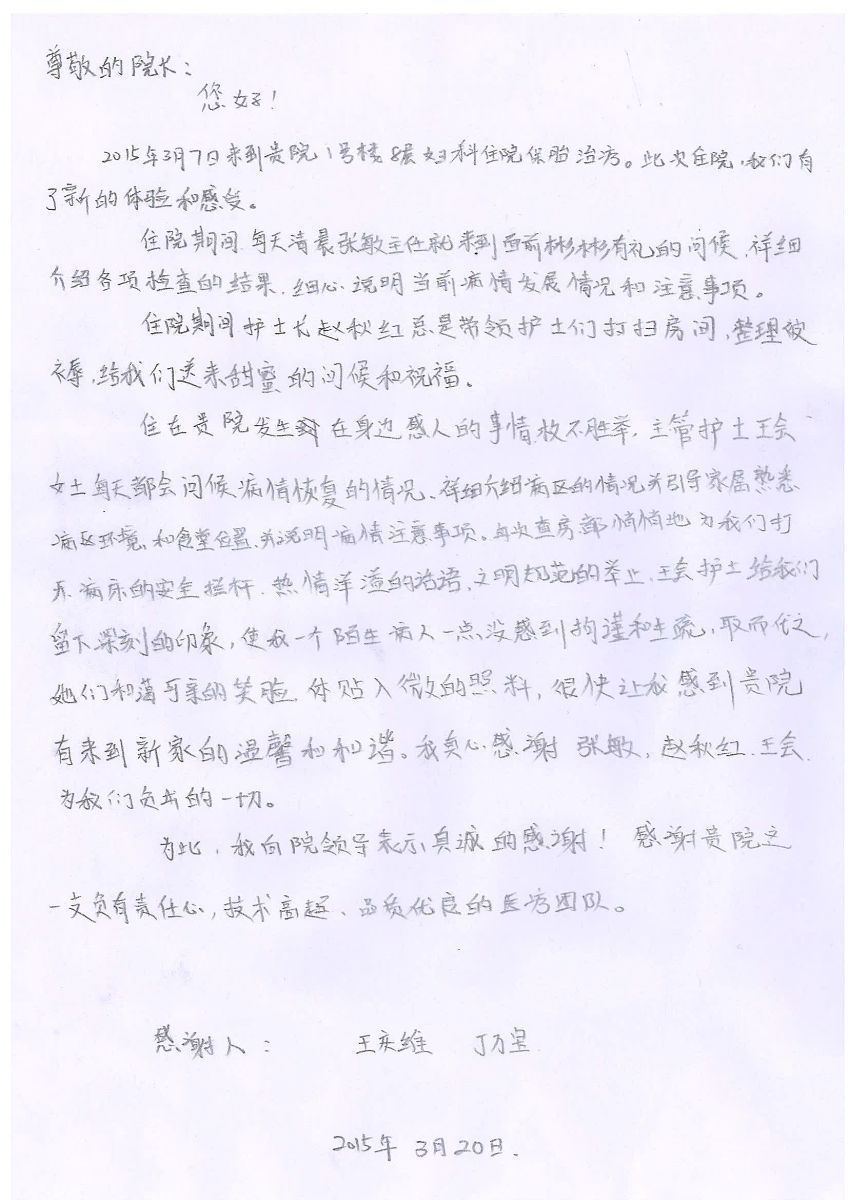 尊敬的院长:
您好!
2015年3月7日来到贵院1号楼8层妇科住院保胎治疗。此次住院,我们有
了新的体验和感受。
住院期间.每天清晨张敏主任就来到面前彬彬有礼的问候.详细
介绍各项检查的结果.细心说明当前病情发展情况和注意事项。
住院期间护士长赵秋红总是带领护士们打扫房间,整理被
褥,给我们送来甜蜜的问候和祝福。
住在贵院发生在身边感人的事情枚不胜举.主管护士王会
女士每天都会问候病情恢复的情况、详细介绍病区的情况并引导家属熟悉
病区环境、和食堂位置.并说明病情注意事项。每次查房都悄悄地为我们打
开病床的安全拦杆.热情洋溢的话语、文明规范的举止.王会护士给我们
留下深刻的印象,使我一个陌生病人一点没感到拘谨和生疏,取而代之,
她们和蔼可亲的笑脸.体贴入微的照料,很快让我感到贵院
有来到新家的温馨和和谐。我真心感谢 张敏,赵秋红.王会.
为我们负出的一切。
为此,我向院领导表示真诚的感谢! 感谢贵院这
一支负有责任心,技术高超、品质优良的医疗团队。
感谢人: 王庆维 丁万宝
2015年 3月20日.